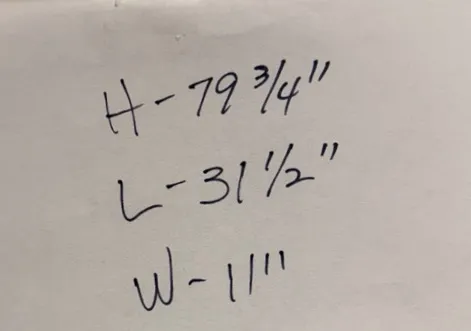 H-79 3/4"
L-31 1/2"
W-11"